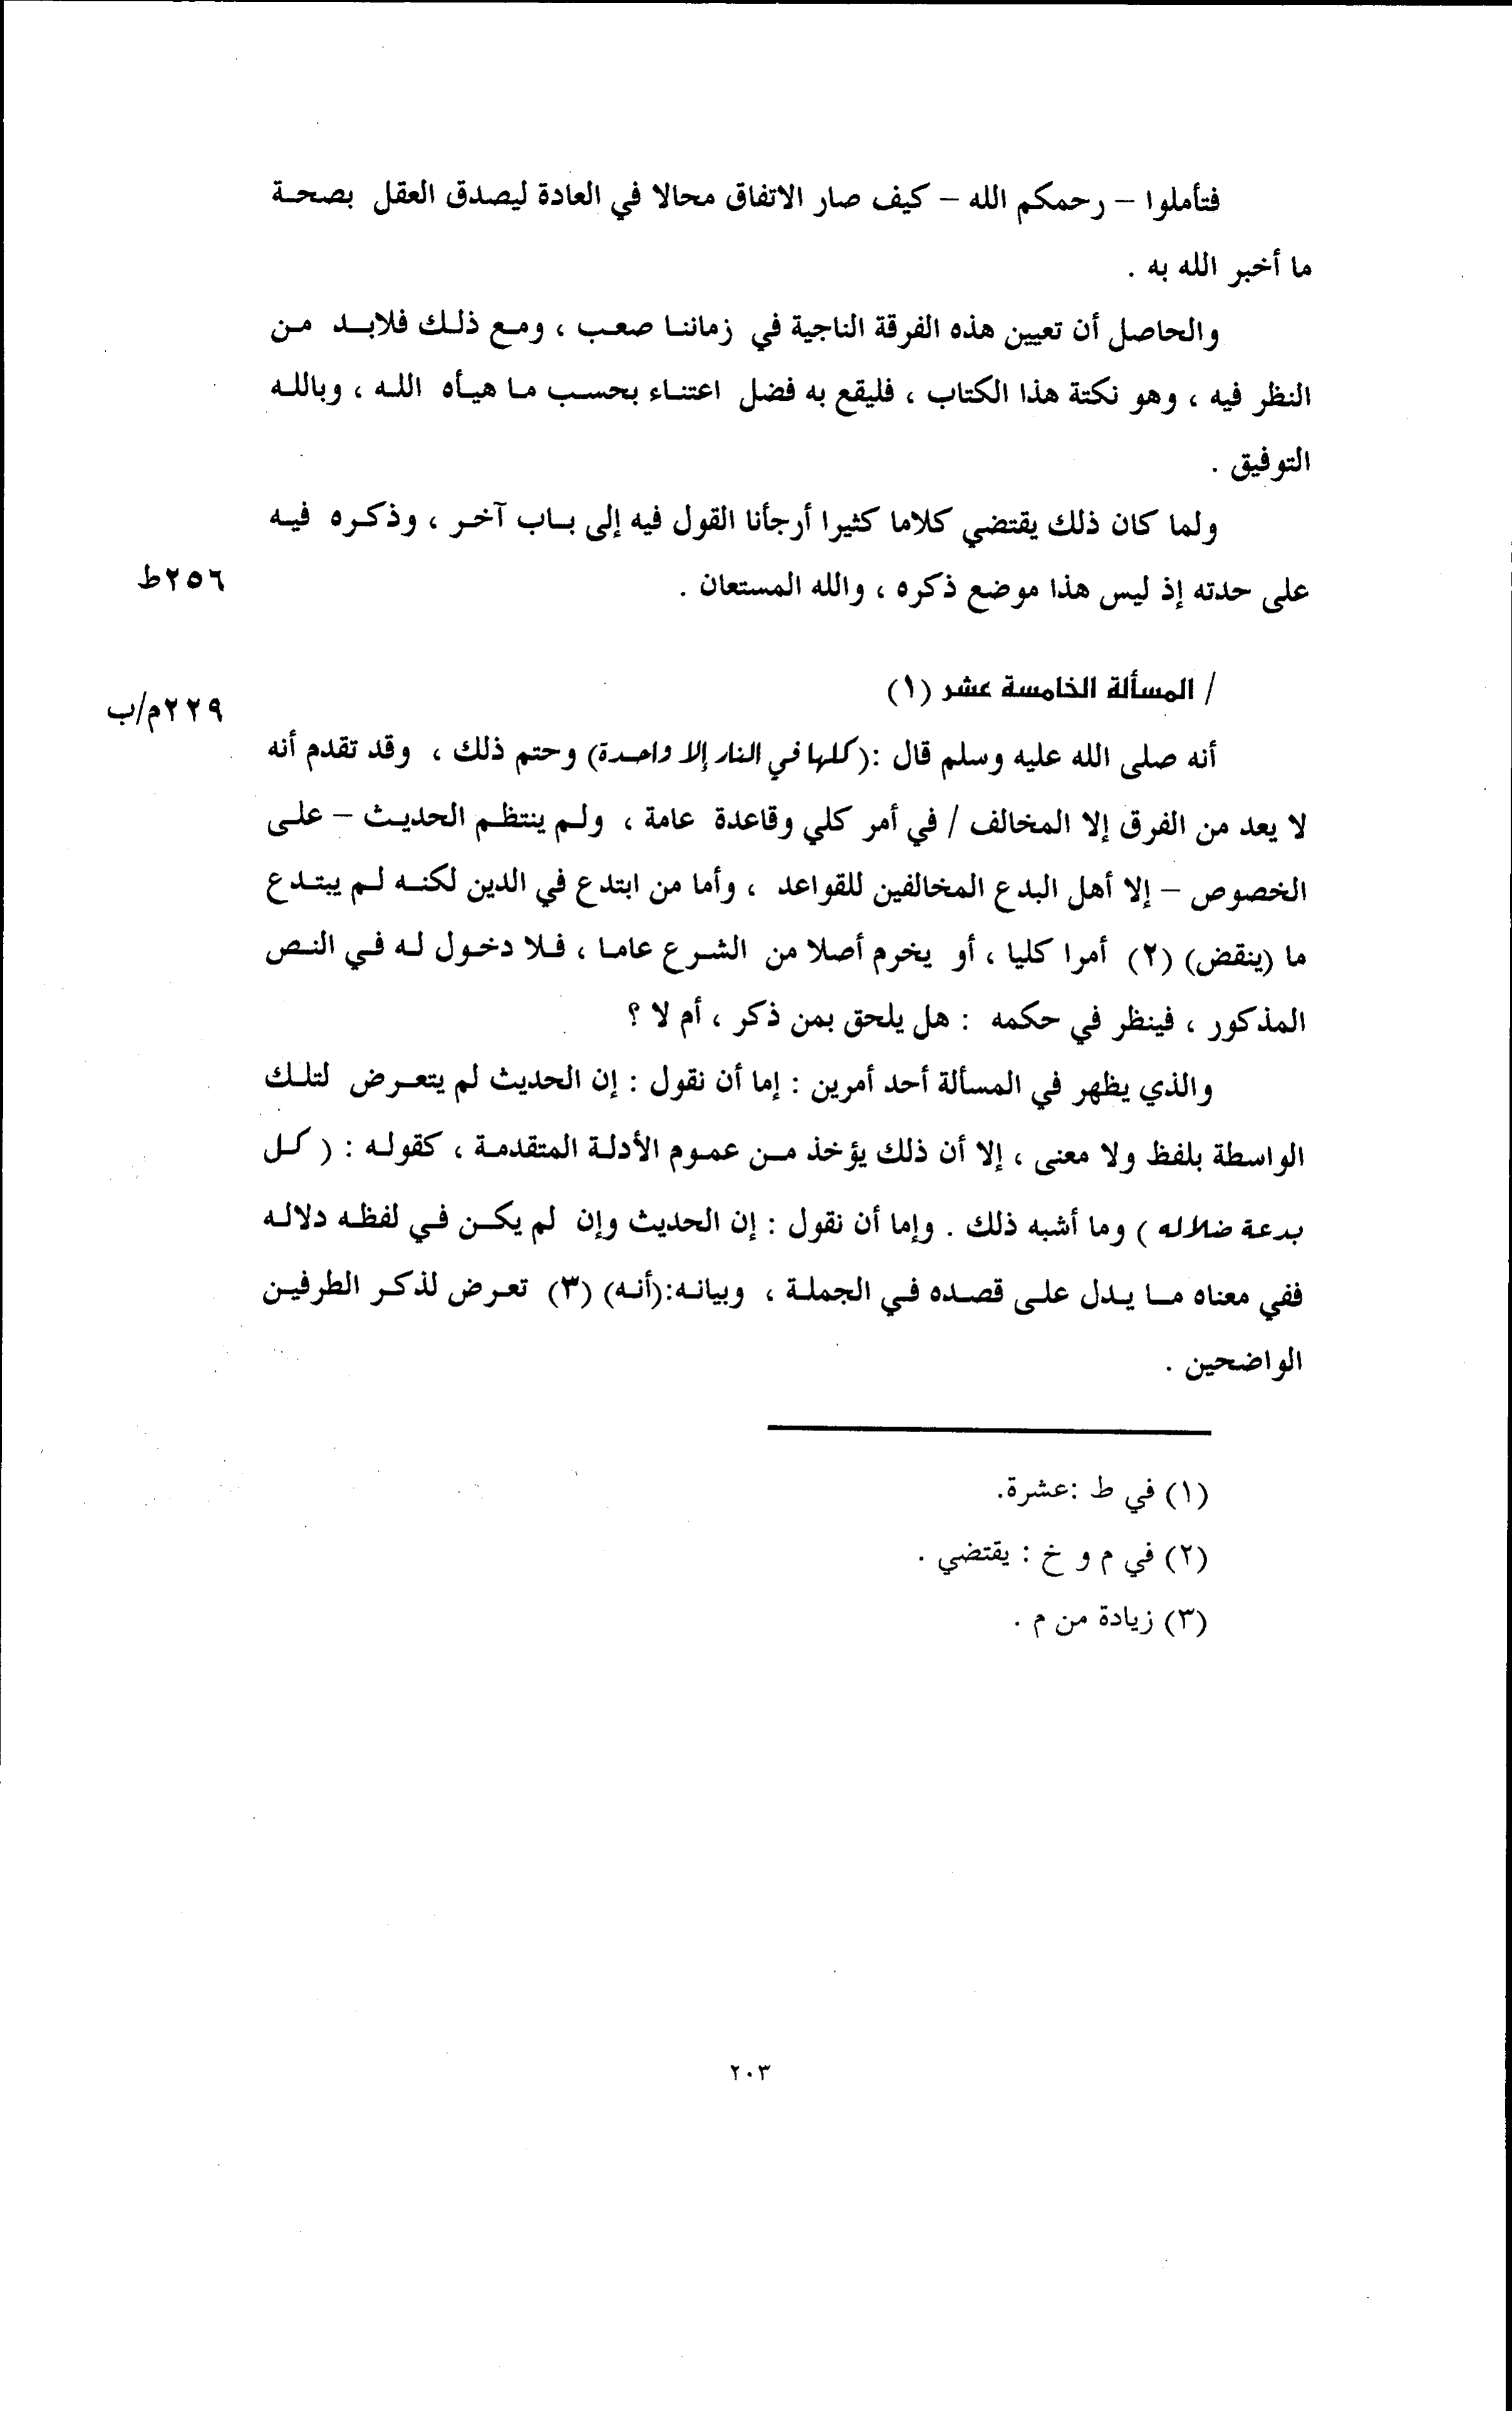 فتأملوا – رحمكم الله – كيف صار الاتفاق محالا في العادة ليصدق العقل بصحة
ما أخبر الله به .
والحاصل أن تعيين هذه الفرقة الناجية في زماننا صعب ، ومع ذلك فلابد من
النظر فيه ، وهو نكتة هذا الكتاب ، فليقع به فضل اعتناء بحسب ما هيأه الله ، وبالله
التوفيق .
ولما كان ذلك يقتضي كلاما كثيرا أرجأنا القول فيه إلى باب آخر ، وذكره فيه
على حدته إذ ليس هذا موضع ذكره ، والله المستعان .
٢٥٦ط
/ المسألة الخامسة عشر (١)
٢٢٩م/ب
أنه صلى الله عليه وسلم قال :(كلها في النار إلا واحدة) وحتم ذلك ، وقد تقدم أنه
لا يعد من الفرق إلا المخالف / في أمر كلي وقاعدة عامة ، ولم ينتظم الحديث – على
الخصوص – إلا أهل البدع المخالفين للقواعد ، وأما من ابتدع في الدين لكنه لم يبتدع
ما (ينقض) (٢) أمرا كليا ، أو يخرم أصلا من الشرع عاما ، فلا دخول له في النص
المذكور ، فينظر في حكمه : هل يلحق بمن ذكر ، أم لا ؟
والذي يظهر في المسألة أحد أمرين : إما أن نقول : إن الحديث لم يتعرض لتلك
الواسطة بلفظ ولا معنى ، إلا أن ذلك يؤخذ من عموم الأدلة المتقدمة ، كقوله : ( كل
بدعة ضلاله ) وما أشبه ذلك . وإما أن نقول : إن الحديث وإن لم يكن في لفظه دلاله
ففي معناه ما يدل على قصده في الجملة ، وبيانه:(أنه) (٣) تعرض لذكر الطرفين
الواضحين .
(١) في ط :عشرة.
(٢) في م و خ : يقتضي .
(٣) زيادة من م .
٢٠٣